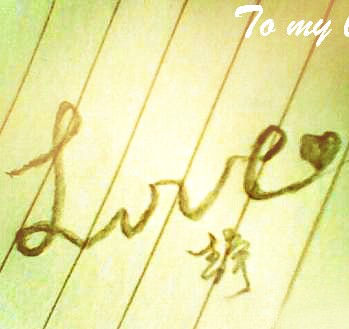 To my
Love